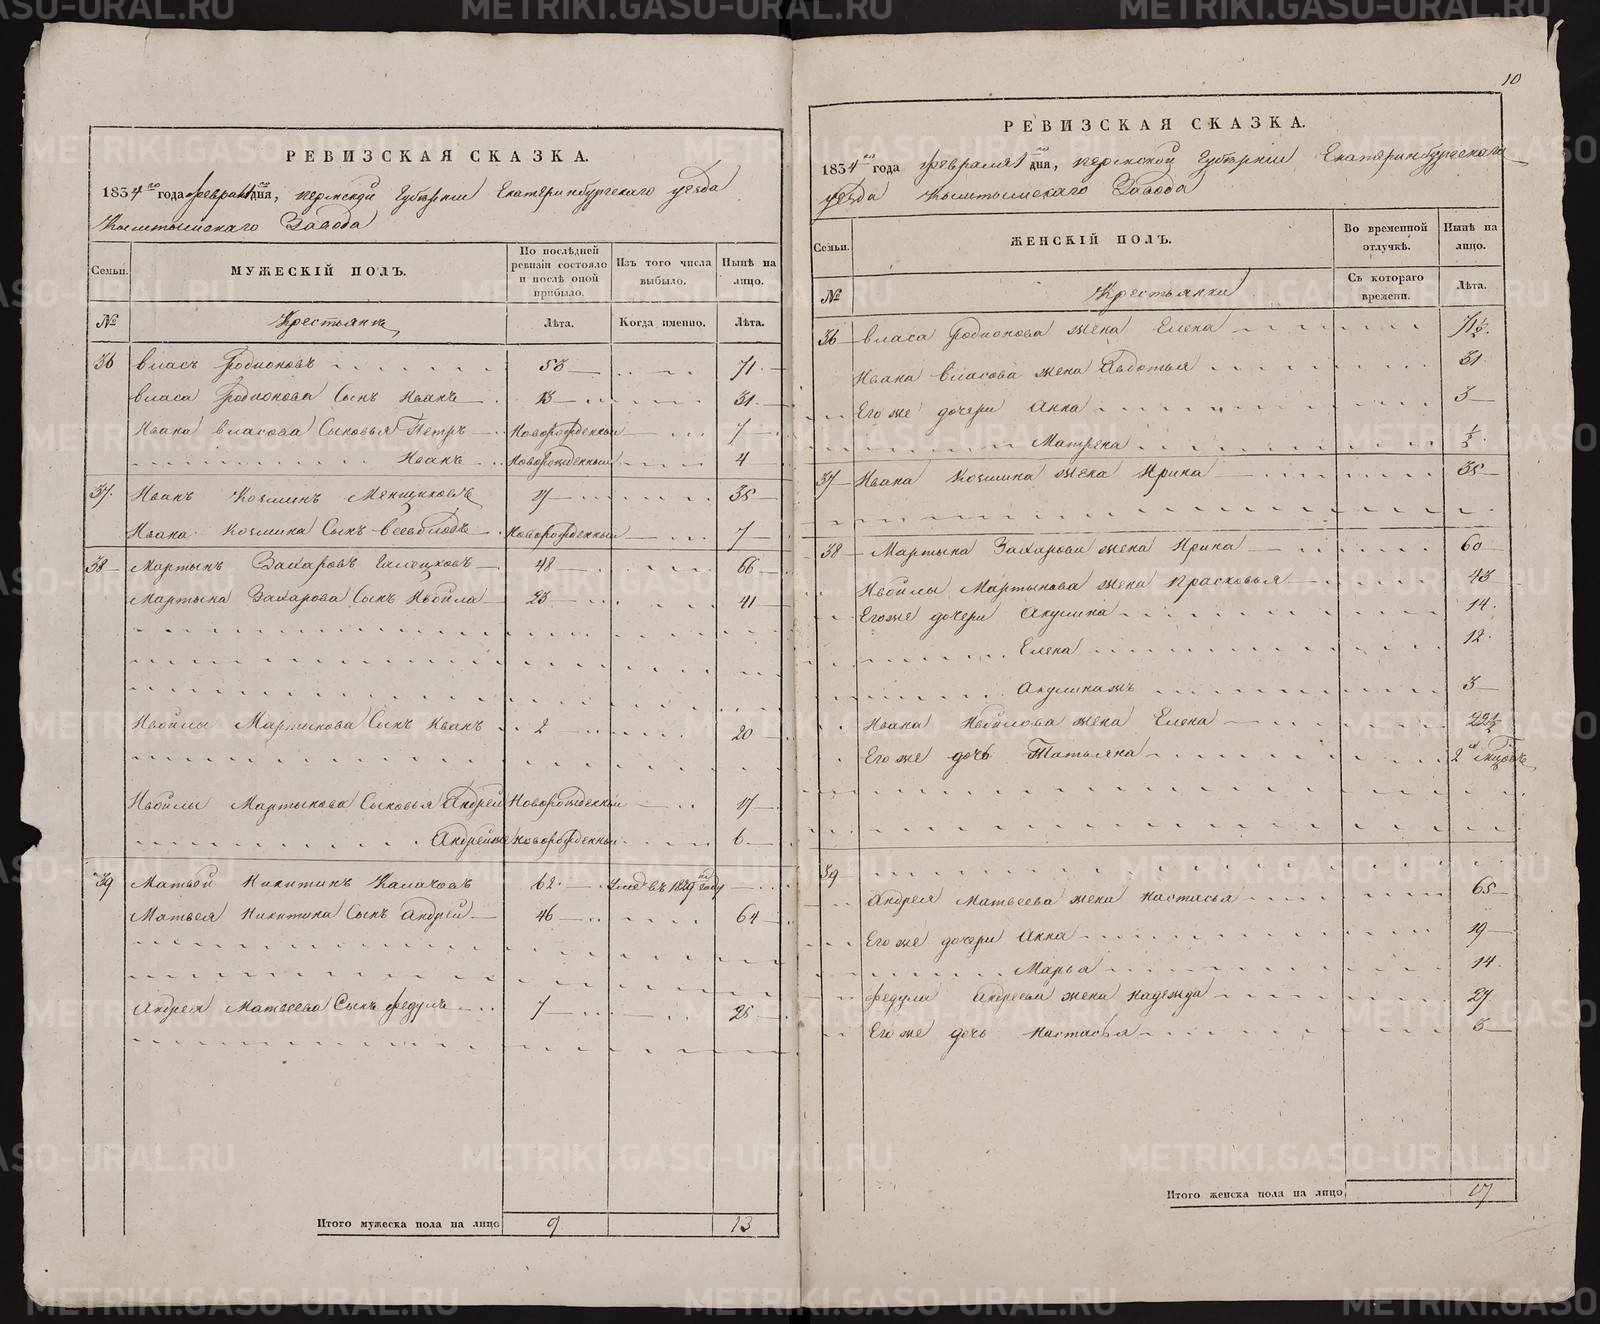 РЕВИЗСКАЯ СКАЗКА.
1834 го года февраля 1 го дня, Пермской Губернiи Екатеринбургскаго уезда
Кыштымскаго Завода
Семьи.
МУЖЕСКІЙ ПОЛЪ.
По послѣдней ревизіи состояло и послѣ оной прибыло.
Изъ того числа выбыло.
Нынѣ на лицо.
№
Крестьяне
Лѣта.
Когда именно.
Лѣта.
36 Власъ Родионовъ 53 71
Власа Родионова Сынъ Иванъ 13 31
Ивана Власова Сыновья Петръ Новорожденный 7
Иванъ Новорожденный 4
37 Иванъ Козминъ Менщиковъ 17 35
Ивана Козмина Сынъ Всеволодъ Новорожденный 7
38 Мартынъ Захаровъ 48 66
Мартына Захарова Сынъ Ивойла 23 41
Ивойлы Мартынова Сынъ Иванъ 2 20
Ивойлы Мартынова Сыновья Андрей Новорожденный 17
Андрейже Новорожденный 6
39 Матвей Никитинъ Калачовъ 62 Умед въ 1829 году
Матвея Никитина Сынъ Андрей 46 64
Андрея Матвеева Сынъ Федулъ 7 25
Итого мужеска пола на лицо 9 13
10
РЕВИЗСКАЯ СКАЗКА.
1834 го года февраля 1 го дня, Пермской Губернiи Екатеринбургскаго
уезда Кыштымскаго Завода
Семьи.
ЖЕНСКІЙ ПОЛЪ.
Во временной отлучкѣ.
Нынѣ на лицо.
№
Крестьянки
Съ котораго времени.
Лѣта.
36 Власа Родионова жена Елена 71 1/2
Ивана Власова жена Авдотья 31
Его же дочери Анна 3
Матрена 1/2
37 Ивана Козмина жена Ирина 35
38 Мартына Захарова жена Ирина 60
Ивойлы Мартынова жена Прасковья 43
Егоже дочери Акулина 14
Елена 12
Акулинажъ 3
Ивана Ивойлова жена Елена 22 1/2
Его же дочь Татьяна 2
39
Андрея Матвеева жена Настасья 65
Его же дочери Анна 19
Марья 14
Федула Андреева жена Надежда 27
Его же дочь Настасья 3
Итого женска пола на лицо 17
METRIKI.GASO-URAL.RU